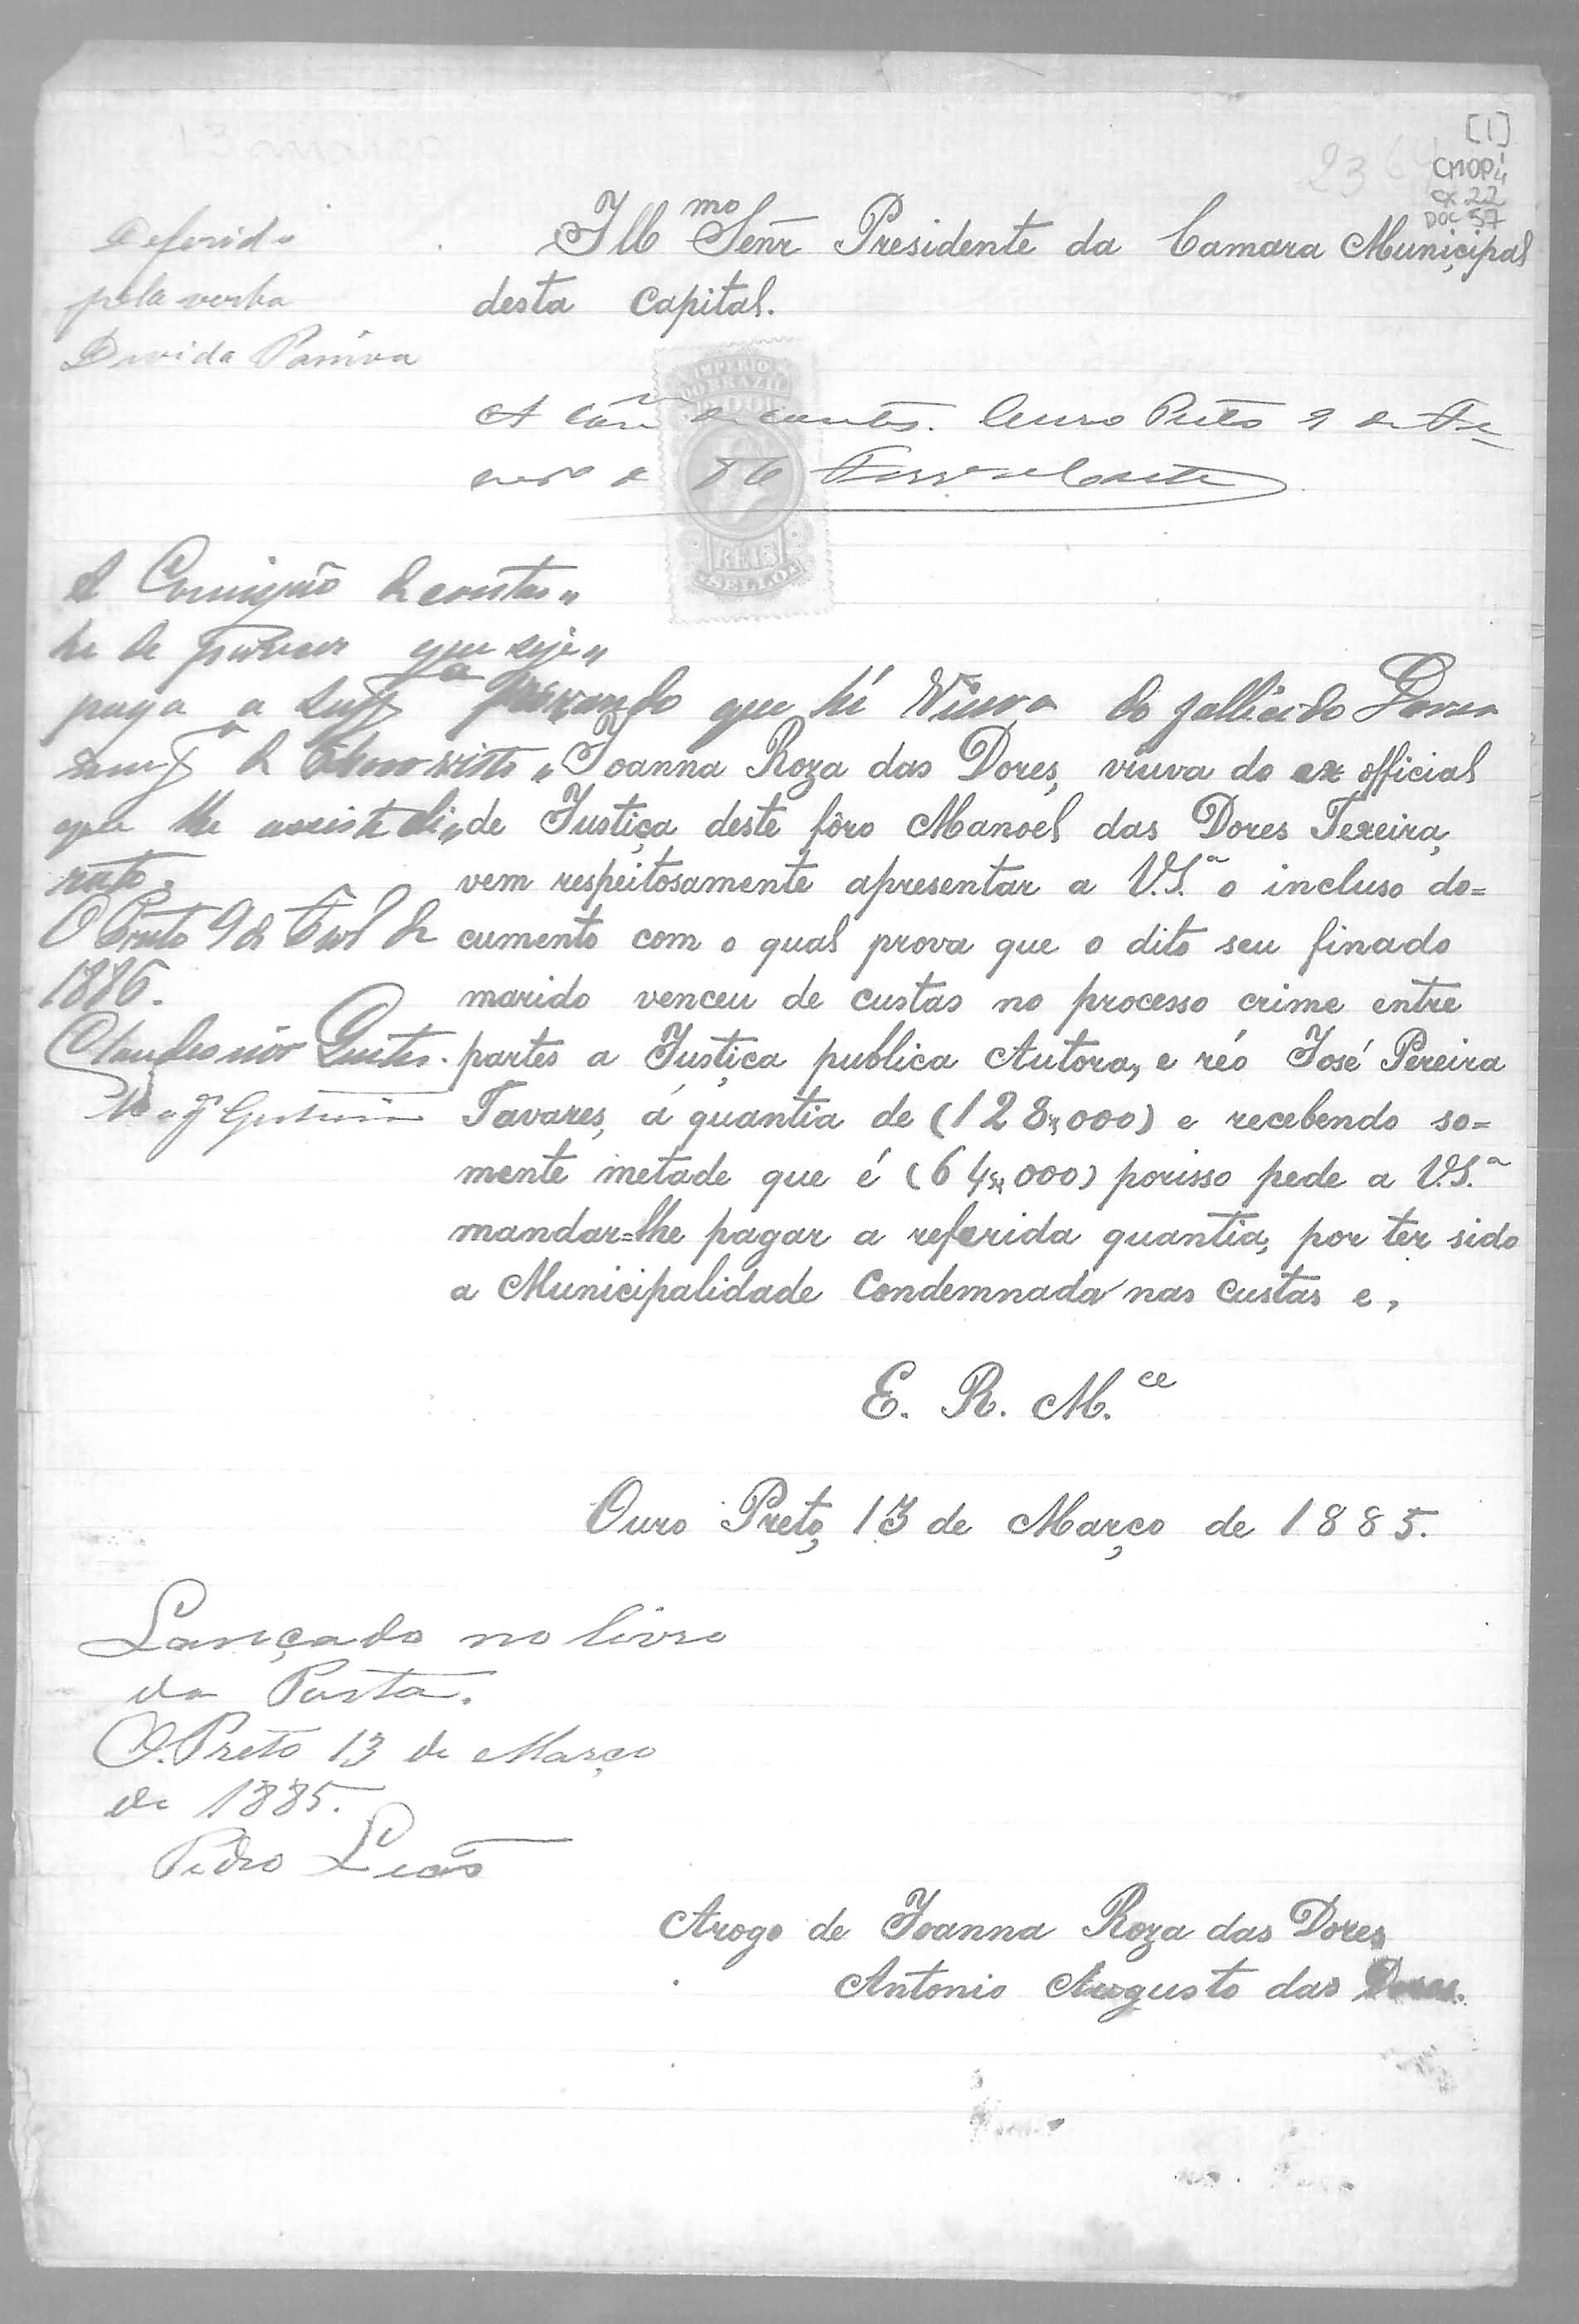 [1]
CMOP
cx 22
DOC 57
Deferido
pela verba
Divida Passiva
Ill.mo Senr. Presidente da Camara Municipal
desta Capital.
IMPERIO
DO BRAZIL
REIS
SELLO
A Com de contas. Ouro Preto 9 de Fe-
vero de 86
A Comissão de contas
he de parecer que seje
paga a Supp.a provando que hé Viuva do fallicido
visto
que lhe assiste di-
reito.
O Preto 9 de Fevr de
1886.
Joanna Roza das Dores, viuva do ex official
de Justiça deste fôro Manoel das Dores Texeira,
vem respeitosamente apresentar a V.S.a o incluso do=
cumento com o qual prova que o dito seu finado
marido venceu de custas no processo crime entre
partes a Justiça publica Autora, e réo José Pereira
Tavares, á quantia de (128$000) e recebendo so=
mente metade que é (64$000) porisso pede a V.S.a
mandar=lhe pagar a referida quantia, por ter sido
a Municipalidade Condemnada nas custas e,
E. R. M.ce
Ouro Preto, 13 de Março de 1885.
Lançado no livro
da Porta.
O. Preto 13 de Março
de 1885.
Pedro Leão
Arogo de Joanna Roza das Dores
Antonio Augusto das Dores.